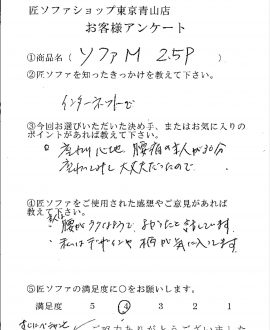 匠ソファショップ東京青山店
お客様アンケート
①商品名( ソファM 2.5P )
②匠ソファを知ったきっかけを教えて下さい。
インターネットで
③今回お選びいただいた決め手、またはお気に入りの
ポイントがあれば教えて下さい。
座り心地 腰痛の主人が30分
座れて大丈夫だったので
④匠ソファをご使用された感想やご意見があれば
教えて下さい。
・腰がラクなようで よかったと話しています。
・私はデザインや 柄が気に入ってます
⑤匠ソファの満足度に○をお願いします。
満足度 5 4 3 2 1
ご協力ありがとうございました